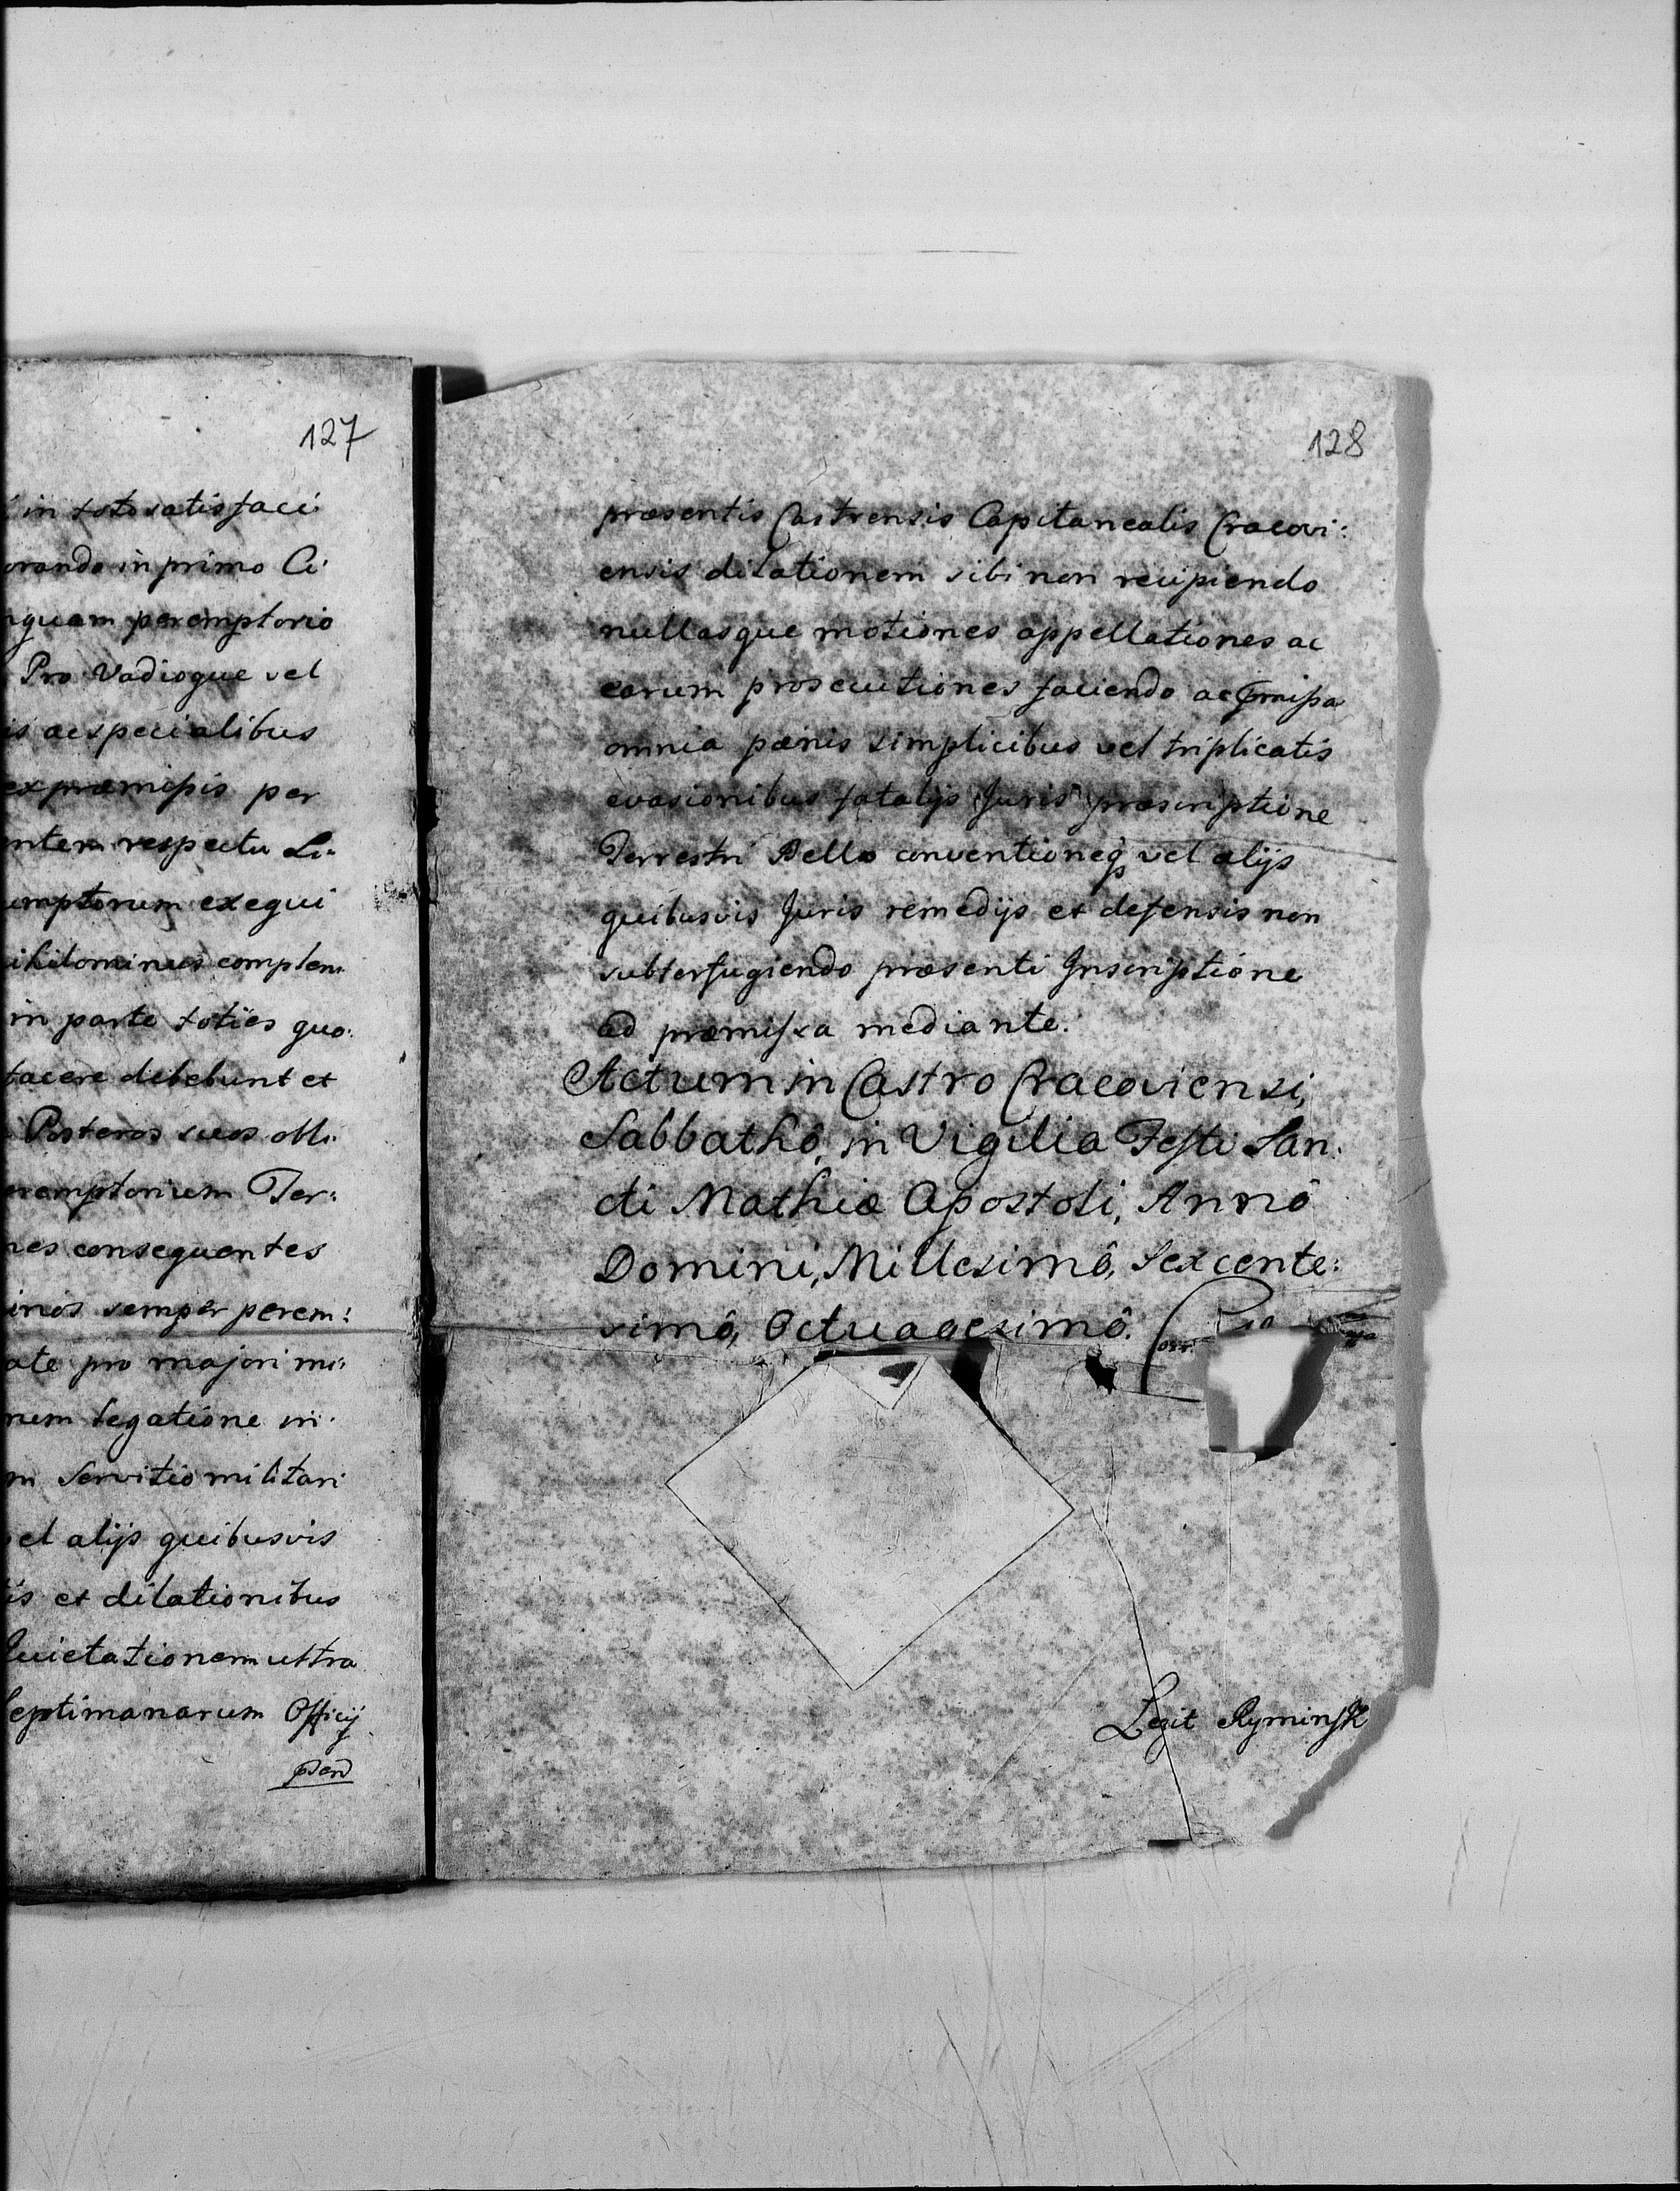 127
in toto satisfaci:
orando in primo Ci:
nquam peremptorio
Pro Vadioque vel
is ac specialibus
ex præmissis per
entem respectu Li:
umptorum exequi
ihilominus complen:
in parte toties quo:
facere debebunt et
Posteros suos obli:
eremptorium Ter:
nes consequentes
inos semper perem:
ate pro majori mi:
num legatione in:
m Servitio militari
vel alijs quibusvis
tis et dilationibus
Quietationem ultra
Septimanarum Officij
128
præsentis Castrensis Capitanealis Cracovi:
ensis dilationem sibi non recipiendo
nullasque motiones appellationes ac
earum prosecutiones faciendo ac pmissa
omnia pænis simplicibus vel triplicatis
evasionibus fatalijs Juris præscriptione
Terrestri Bello conventioneq vel alijs
quibusvis Juris remedijs et defensis non
subterfugiendo præsenti Inscriptione
ad præmissa mediante.
Actum in Castro Cracoviensi,
Sabbathô, in Vigilia Festi San:
cti Mathiæ Apostoli, Annô
Domini, Millesimô, Sexcente:
simô, Octuagesimô.
Legit Ryminsk